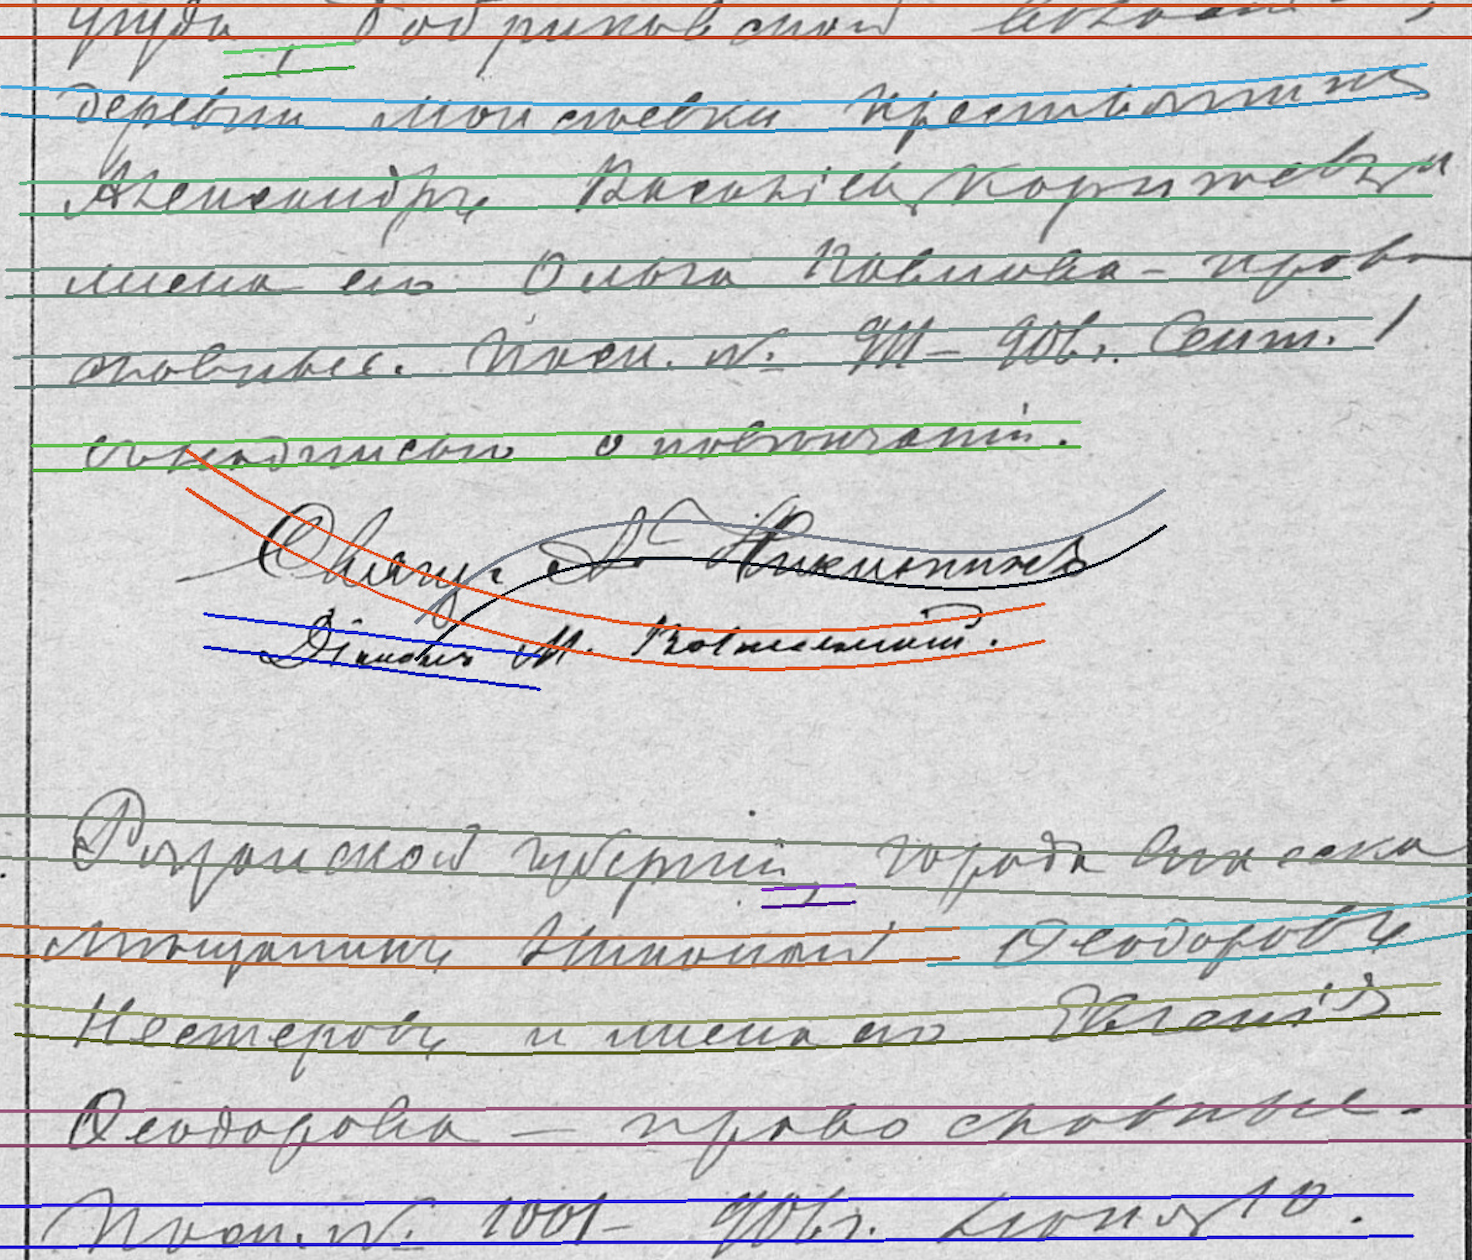 уѣзда, Бобриковской волости,
деревни Моисеевки крестьянинъ
Александръ Васильевъ и
жена его Ольга Павлова - право
славные. Посл. №. 911 - 906 г. Сент. 1
съ подписью о повѣнчаніи.
Священ. Д. Никитинъ
Діаконъ М.
Рязанской губерніи, города Спасска
мѣщанинъ Николай Ѳеодоровъ
Нестеровъ и жена его Евгенія
Ѳеодорова — православные.
Посл. №. 1001 - 906 г. 10.